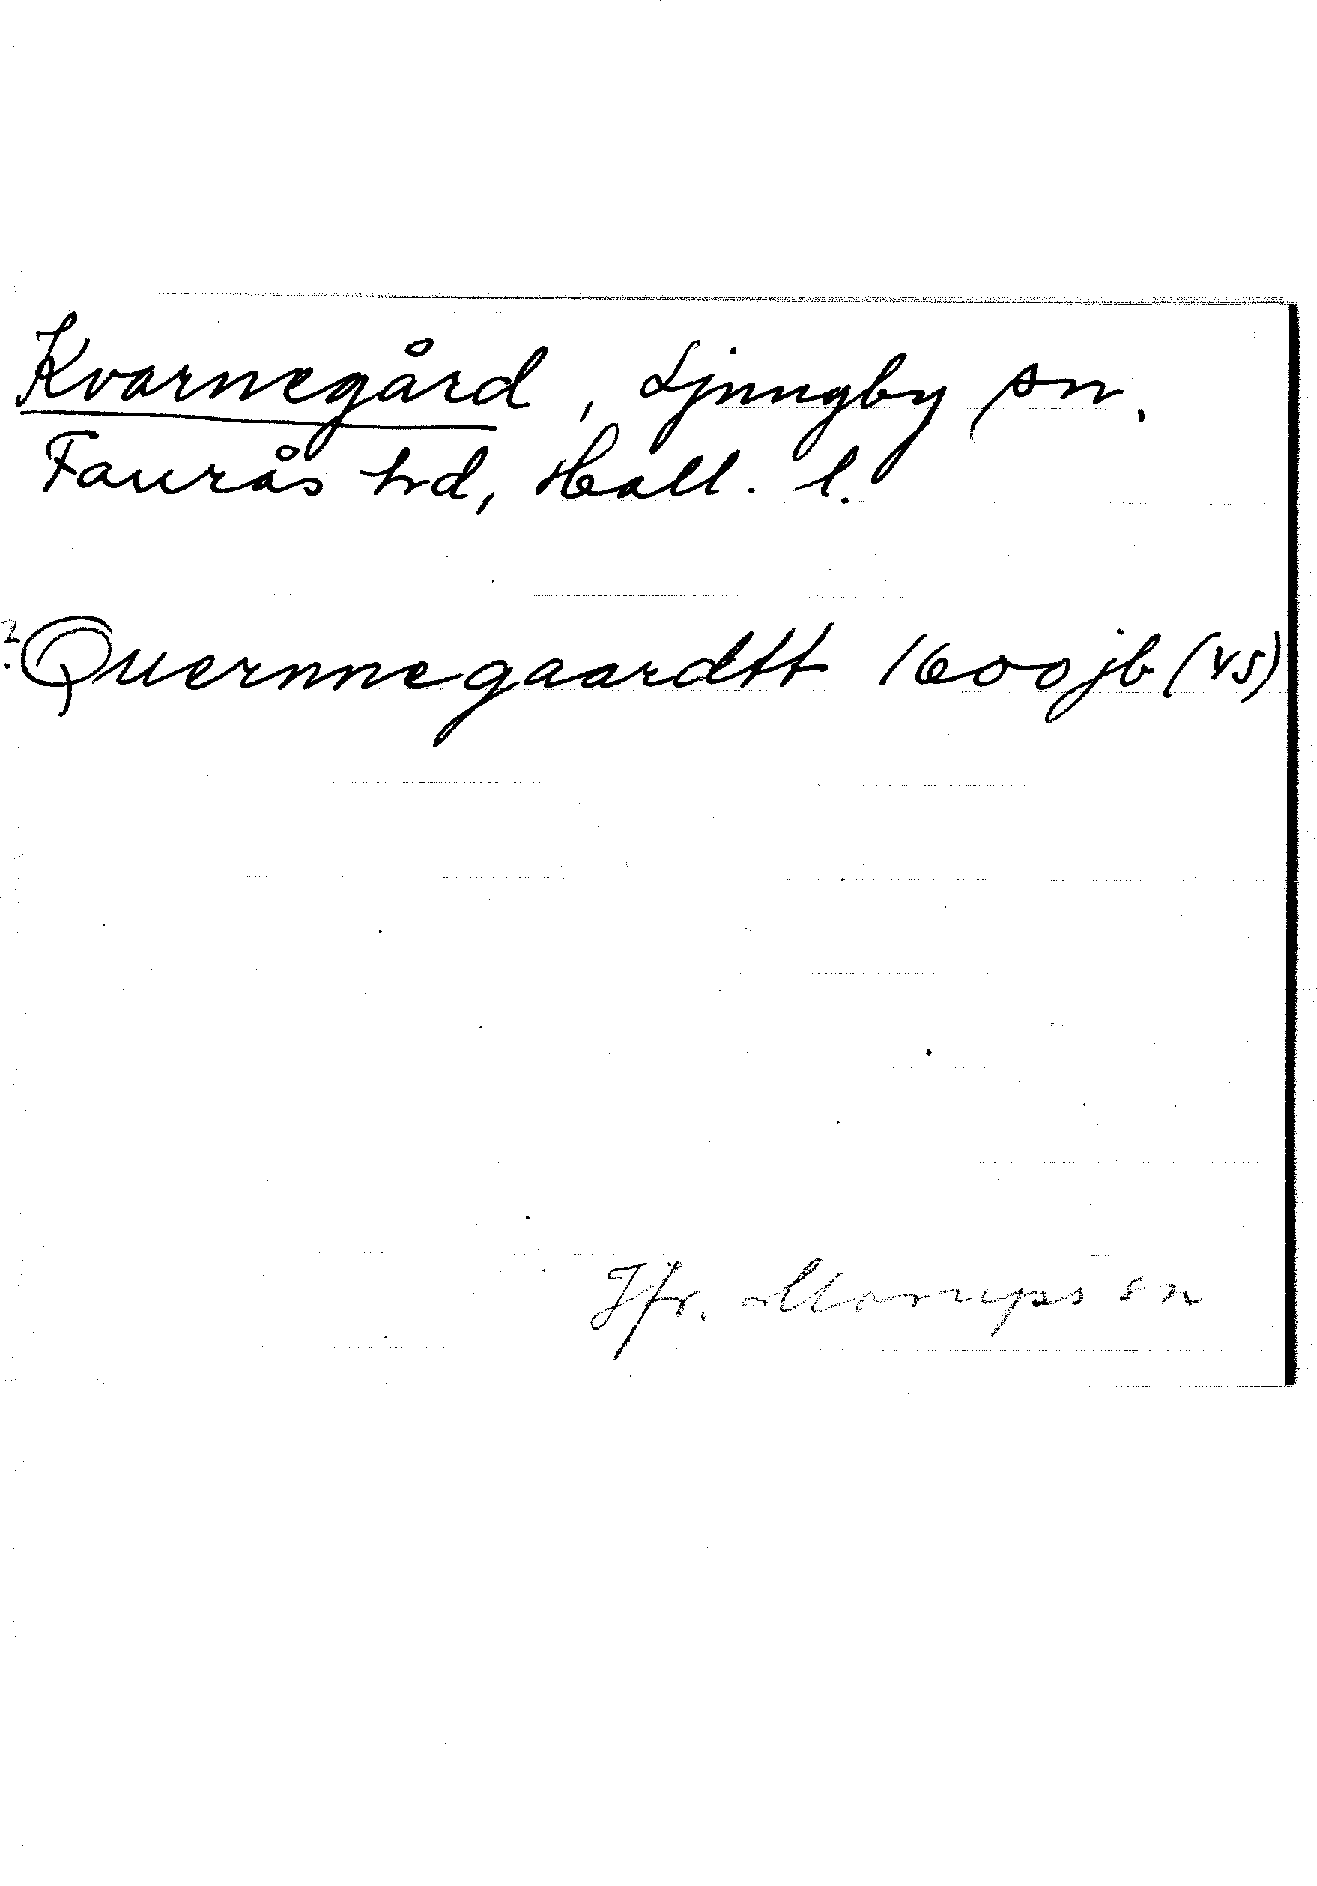 Kvarnegård, Ljungby sn.
Faurås hd, Hall. l.
? Quernnegaardtt 1600 jb (VS)
Jfr. Morups sn